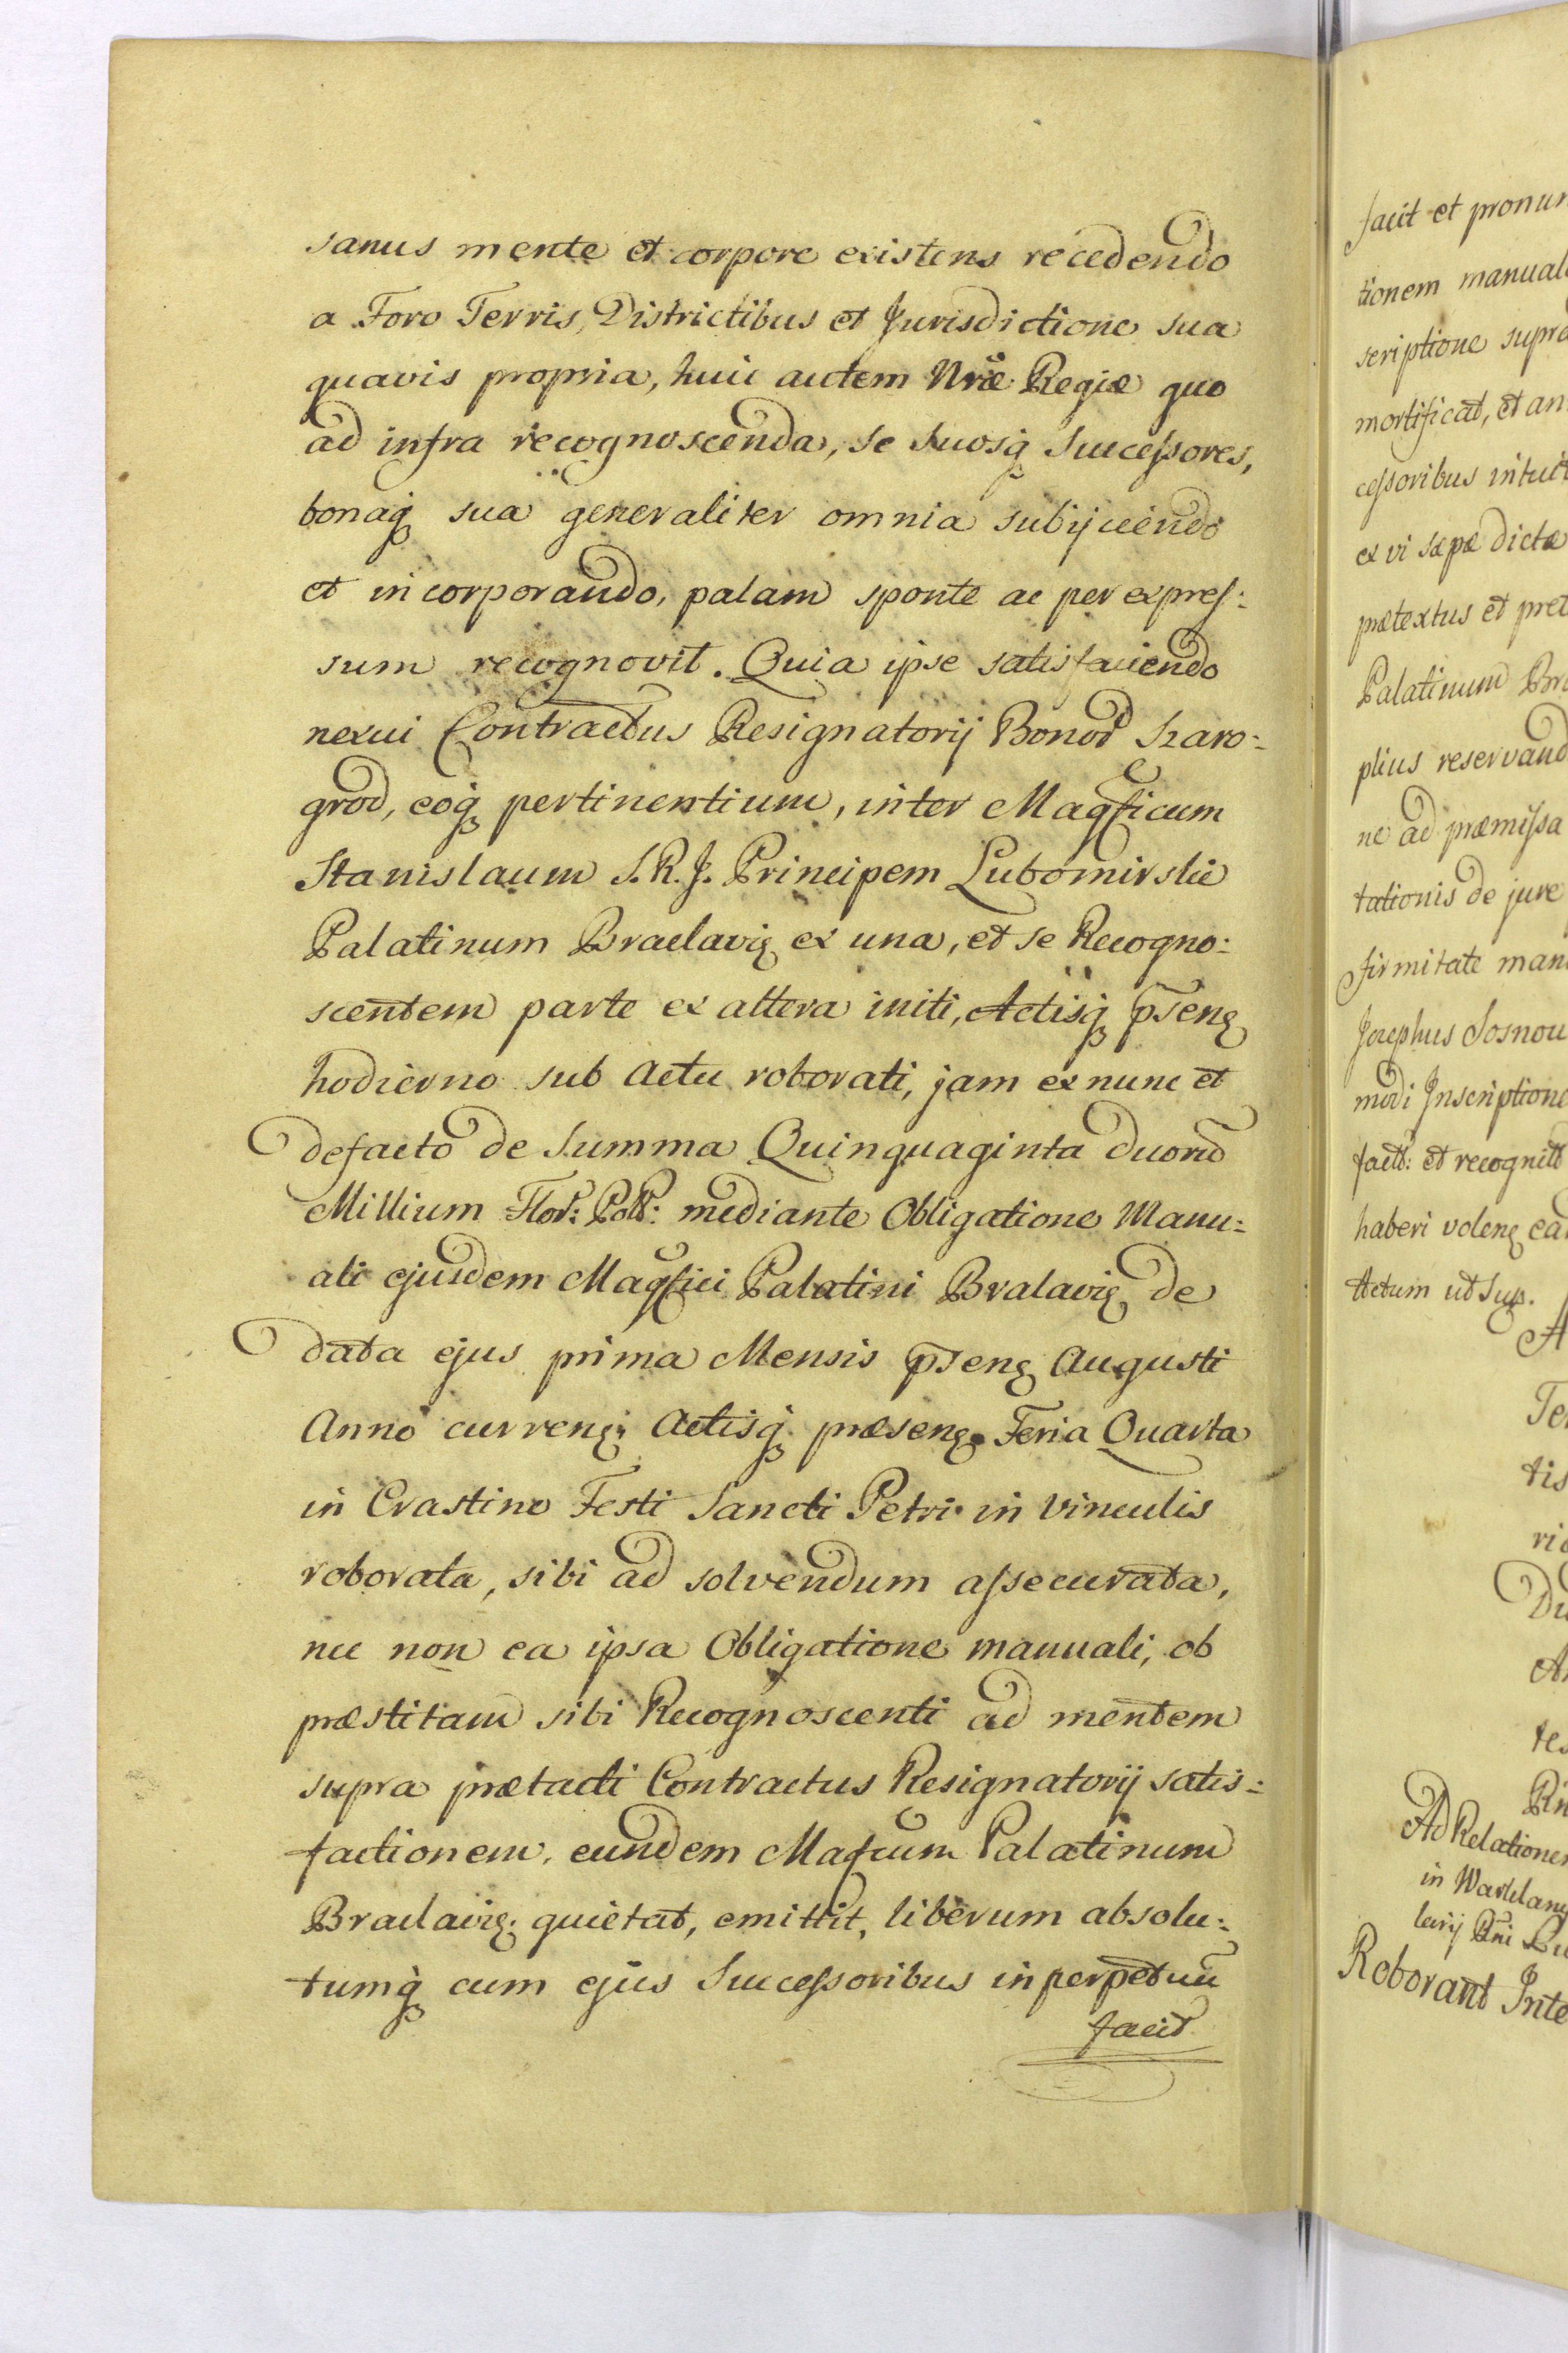 sanus mente et corpore existens recedendo
a Foro Terris, Districtibus et Jurisdictione sua
quavis propria, huic autem Nrae Regiæ quo
ad infra recognoscenda, se suosq̃ Succeſsores,
bonaq̃ sua generaliter omnia subijciendo
et incorporando, palam sponte ac per expreſ:
sum recognovit. Quia ipse satisfaciendo
nexui Contractus Resignatorij Bonor̃ Szaro:
grod, eoq̃ pertinentium, inter Magficum
Stanislaum S.R.J. Principem Lubomirski
Palatinum Braclavię ex una, et se Recogno:
scentem parte ex altera initi, Actisq̃ p̃seną
hodierno sub Actu roborati, jam ex nunc et
defacto de Summa Quinquaginta duorũ
Millium Flor: Poll: mediante Obligatione Manu:
ali ejusdem Magfici Palatini Bralavię de
data ejus prima Mensis p̃seną Augusti
Anno curreną Actisq̃ præseną Feria Quarta
in Crastino Festi Sancti Petri in Vinculis
roborata, sibi ad solvendum aſsecurata,
nec non ea ipsa Obligatione manuali, ob
præstitam sibi Recognoscenti ad mentem
supra prætacti Contractus Resignatorij satis:
factionem, eundem Magcum Palatinum
Braclavię quietat, emittit, liberum absolu:
tumq̃ cum ejus Succeſsoribus in perpetuũ
facit
facit et pronun
tionem manual
scriptione supra
mortificat, et an
ceſsoribus intuit
ex vi sæpæ dictæ
prætextus et pret
Palatinum Bra
plius reservand
ne ad præmiſsa
tationis de jure
firmitate man
Josephus Sosnow
modi Inscriptione
factt: et recognitt
haberi voleną ea
Actum ut Sup.
A
Te
tis
ri
Du
A
tes
Rn
Ad Relationem
in Warklany
larij Rni Lu
Roborant Inte